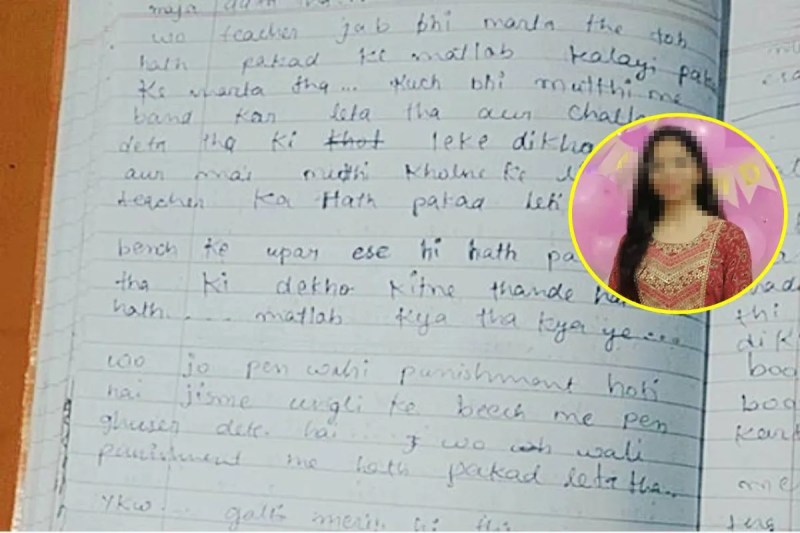 maja
wo teacher jab bhi marta the toh
hath pakad ke matlab kalayi pak
ke marta tha... kuch bhi mutthi me
band kar leta tha aur chall
deta tha ki leke dikho
aur mai mutthi kholne ke
teacher ka hath pakad leti
bench ke upar ese hi hath pa
tha ki dekho kitne thande ha
hath.... matlab kya tha kya ye....
wo jo pen wali punishment hoti
hai jisme ungli ke beech me pen
ghuser dete hai... wo wali
punishment me hath pakad leta tha..
YKW... galti meri hi thi
thi
dik
boo
boo
kar
me